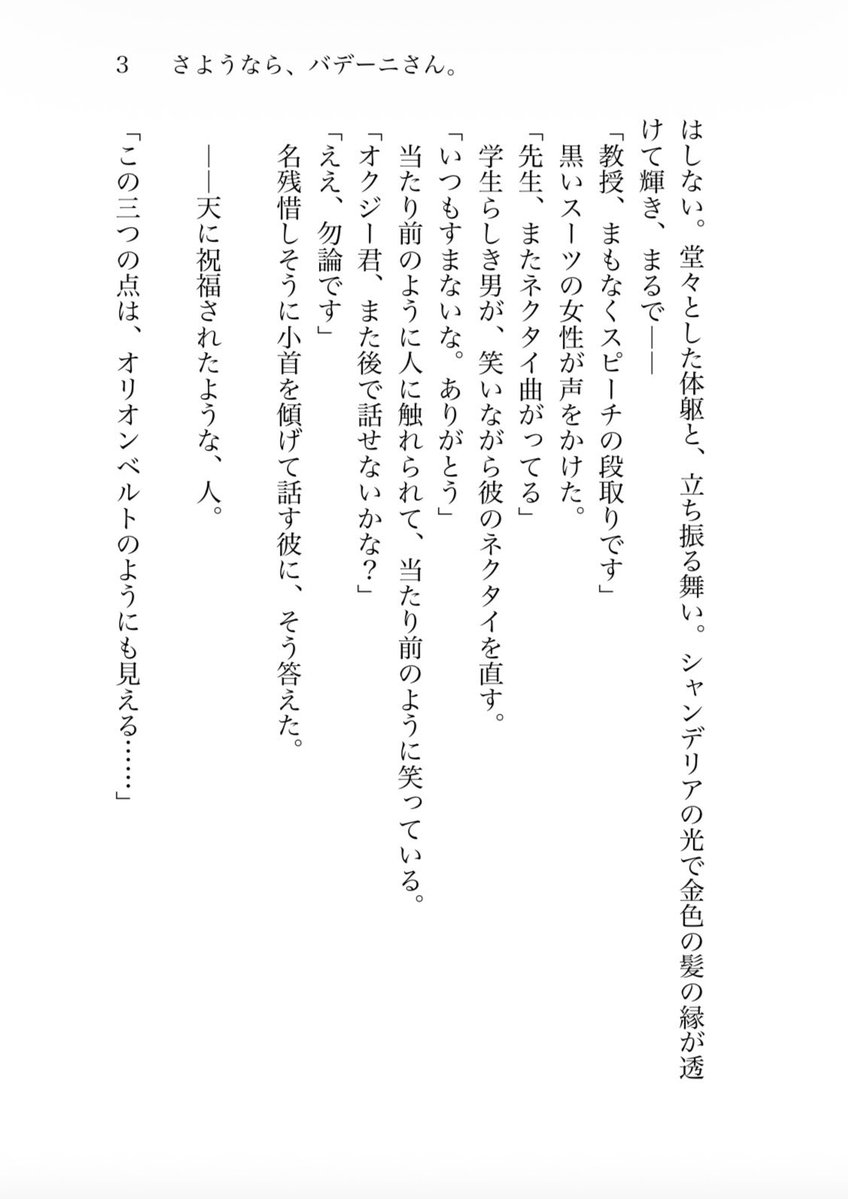 3 さようなら、バデーニさん。
はしない。堂々とした体躯と、立ち振る舞い。シャンデリアの光で金色の髪の縁が透
けて輝き、まるで――
「教授、まもなくスピーチの段取りです」
黒いスーツの女性が声をかけた。
「先生、またネクタイ曲がってる」
学生らしき男が、笑いながら彼のネクタイを直す。
「いつもすまないな。ありがとう」
当たり前のように人に触れられて、当たり前のように笑っている。
「オクジー君、また後で話せないかな？」
「ええ、勿論です」
名残惜しそうに小首を傾げて話す彼に、そう答えた。
――天に祝福されたような、人。
「この三つの点は、オリオンベルトのようにも見える……」